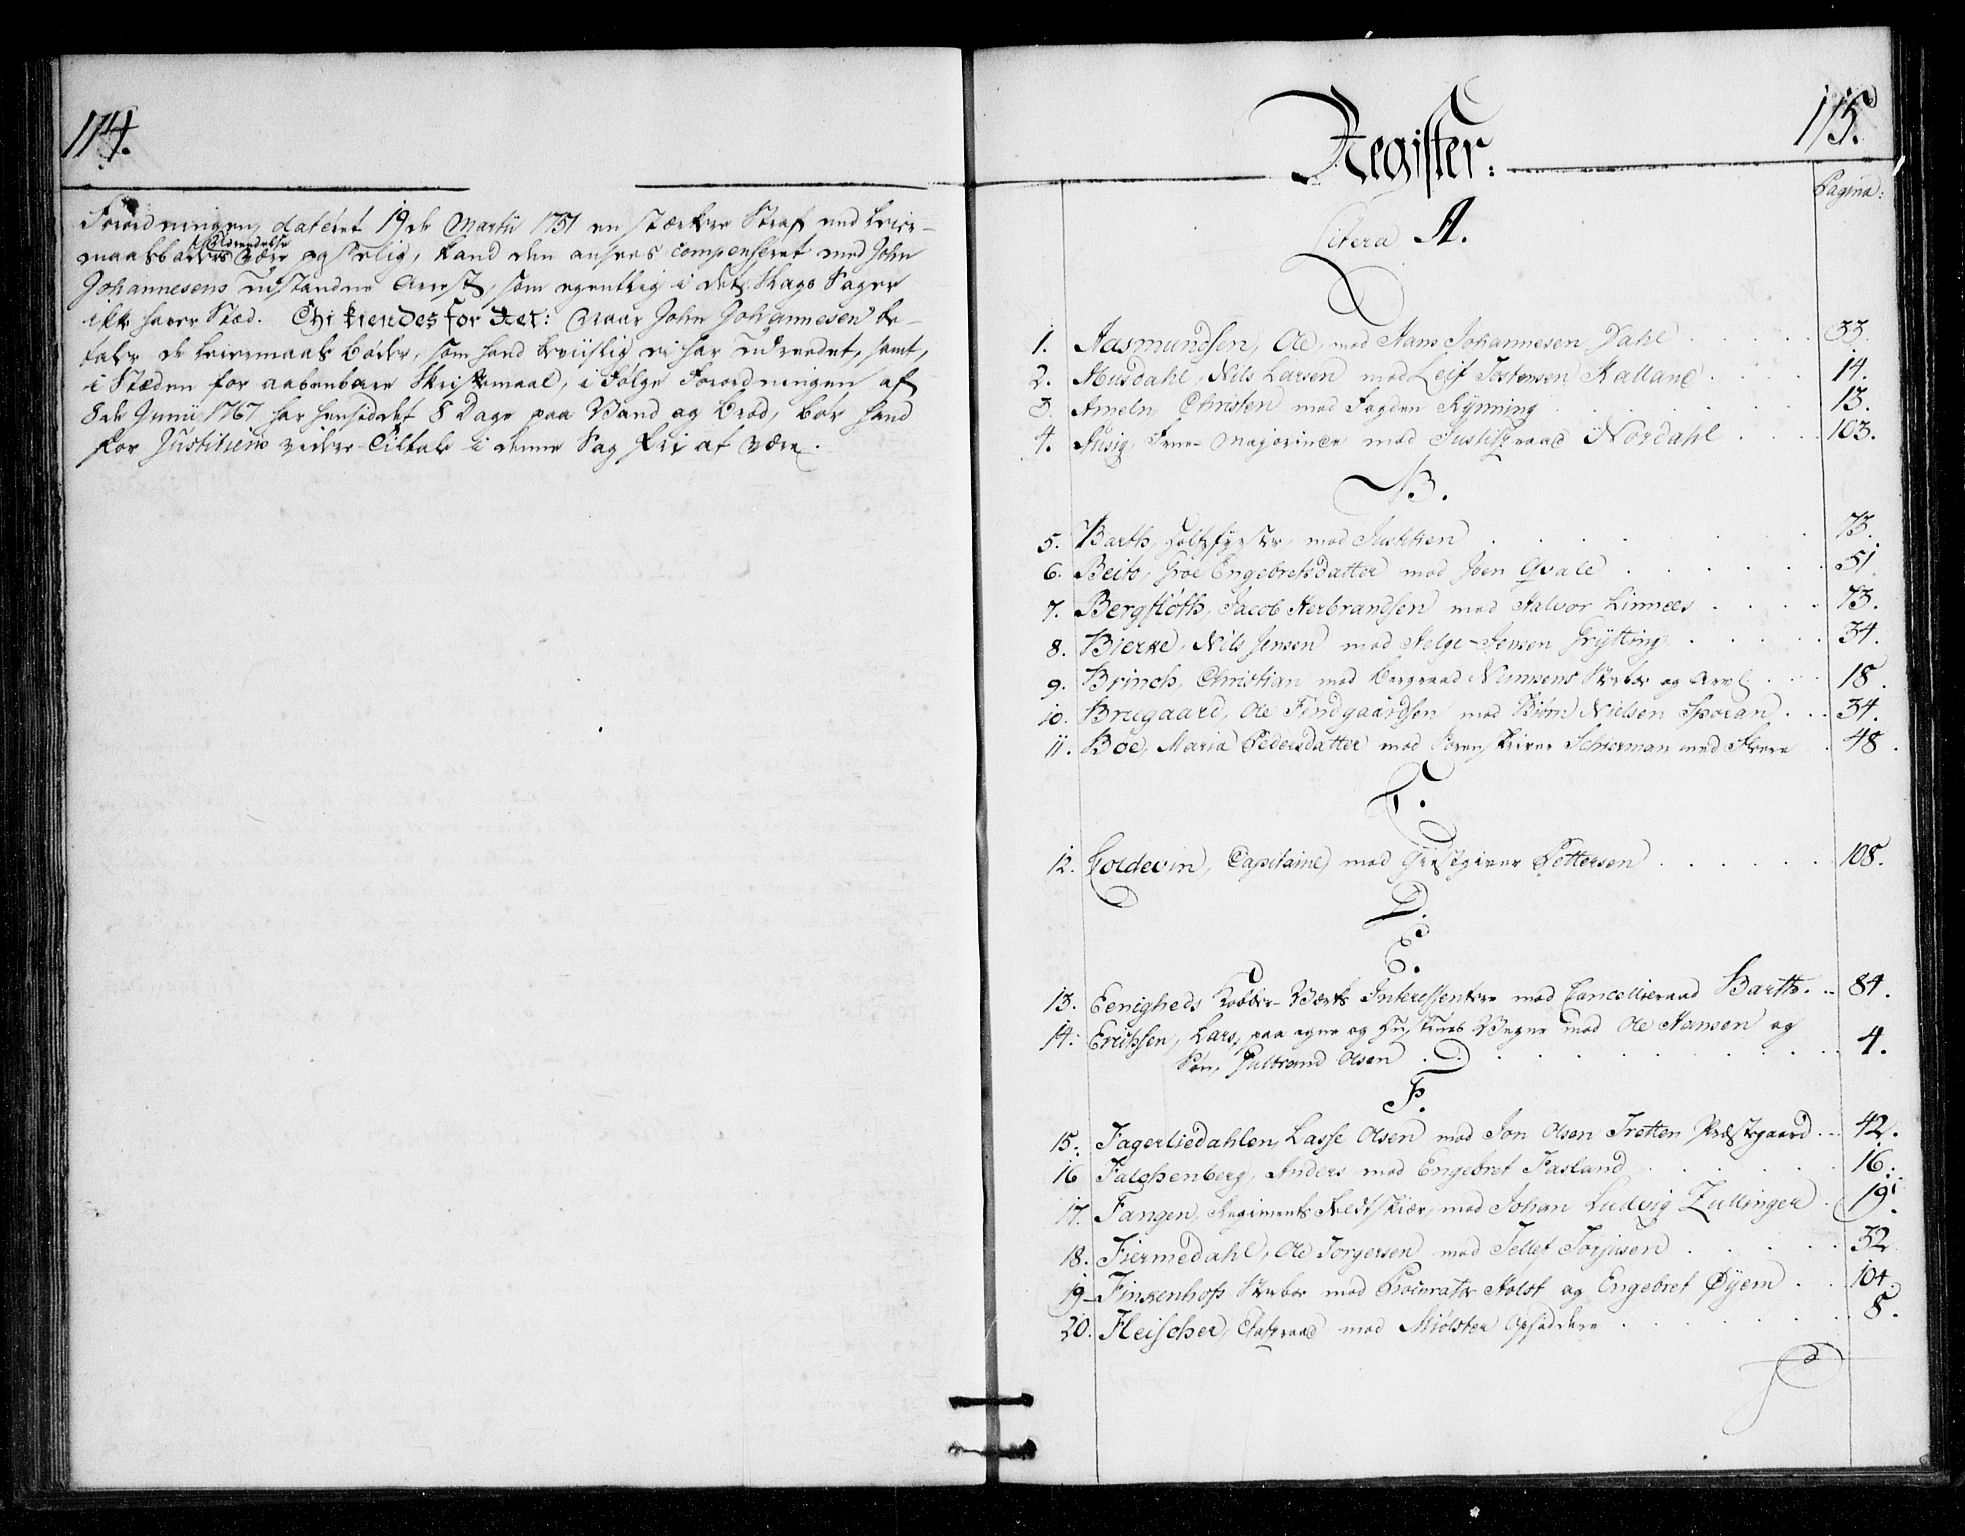 114.
Forordningen, dateret 19de Martii 1751 en stærkere Straf end Leier-
maals bøders Udreedelse være pligtig, kand den ansees compenseret med John
Johannesens udstandne Arrest, som egentlig i det Slags Sager
ikke haver Stæd. Thi kiendes for Ret: Naar John Johannesen be-
taler de Leiermaals bøder, som hand beviislig ei har udreedet, samt,
i Stæden for aabenbare Skriftemaal, i Følge Forordningen af
8de Junii 1767 har hensiddet 8 Dage paa Vand og Brød, bør hand
for Justitiens videre Tiltale i denne Sag frie at være.
115.
Register:
Pagina:
Litera A.
1. Aasmundsen, Ole, mod Hans Johannesen Dahl 33.
2. Ausdahl, Nils Larsen mod Leif Tostensen Kalland 14.
3. Ameln Christen mod Fogden Rynning 13.
4. Ausig, Frue Majorinde mod Justitsraad Nordahl 103.
B.
5. Barth, Holtzførster, mod Justitien 73.
6. Beito, Groe Engebretsdatter mod Joen Qvale 51
7. Bergfloth, Jacob Herbrandsen mod Halvor Linnees 73.
8. Bierke, Nils Jensen mod Helge Jensen Grytting 34.
9. Brinch, Christian mod Bergraad Nimsens Sterboe og Arv. 18.
10. Bruegaard, Ole Findgaardsen mod Biørn Nielsen Sporan 34.
11. Bøe, Maria Pedersdatter mod Sorenskriver Schierman med Flere 48.
C.
12. Coldevin, Capitaine, mod Giestgiver Pettersen 108.
D.
E.
13. Eenigheds Kobber-Værks Interessentere mod Cancellieraad Barth. 84.
14. Erichsen, Lars, paa egne og Hustrues Vegne mod Ole Hansen og
Søn, Gulbrand Olsen 4.
F.
15. Fagerliedahlen, Lasse Olsen mod Jon Olsen Tretten Præstegaard 42.
16 Falchenberg, Anders mod Engebret Fasland 16.
17. Fangen, Regiments Feldtskiær, mod Johan Ludvig Zullinger 19.
18. Fiermedahl, Ole Torgersen mod Tellef Torjusen 32
19. Finkenhofs Sterboe mod Procurator Holst og Engebret Øyem 104.
20. Fleischer, Etatsraad mod Miølster Opsiddere 8.